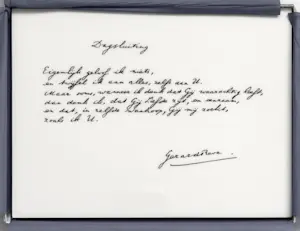 Dagsluiting
Eigenlijk geloof ik niets,
en twijfel ik aan alles, zelfs aan U.
Maar soms, wanneer ik denk dat Gij waarachtig leeft,
dan denk ik, dat Gij Liefde zijt, en eenzaam,
en dat, in zelfde wanhoop, Gij mij zoekt,
zoals ik U.
Gerard Reve